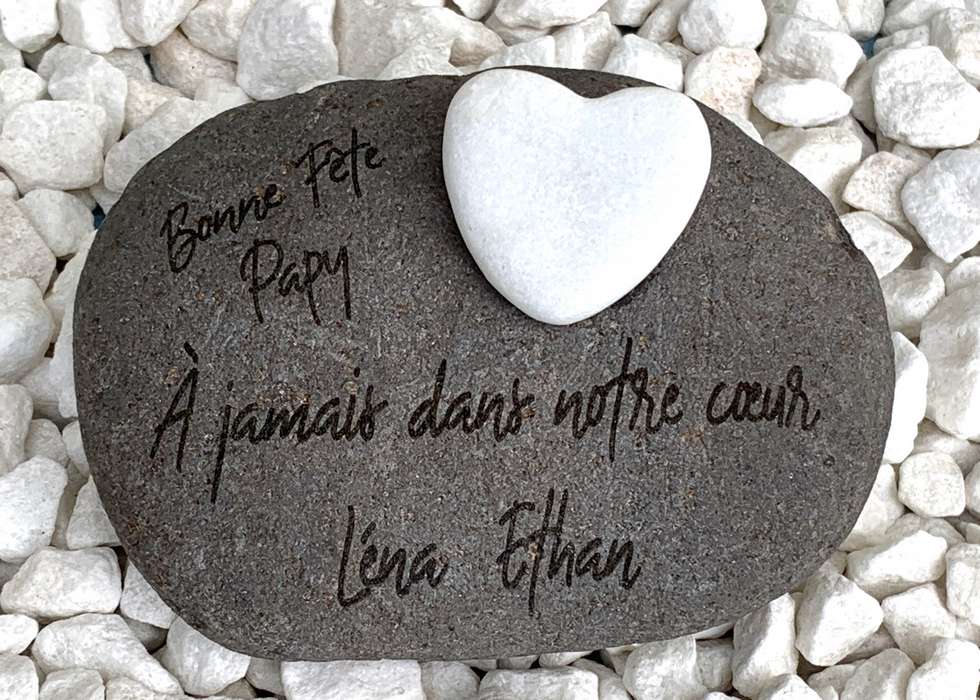 Bonne Fête
Papy
À jamais dans notre cœur
Léna Ethan